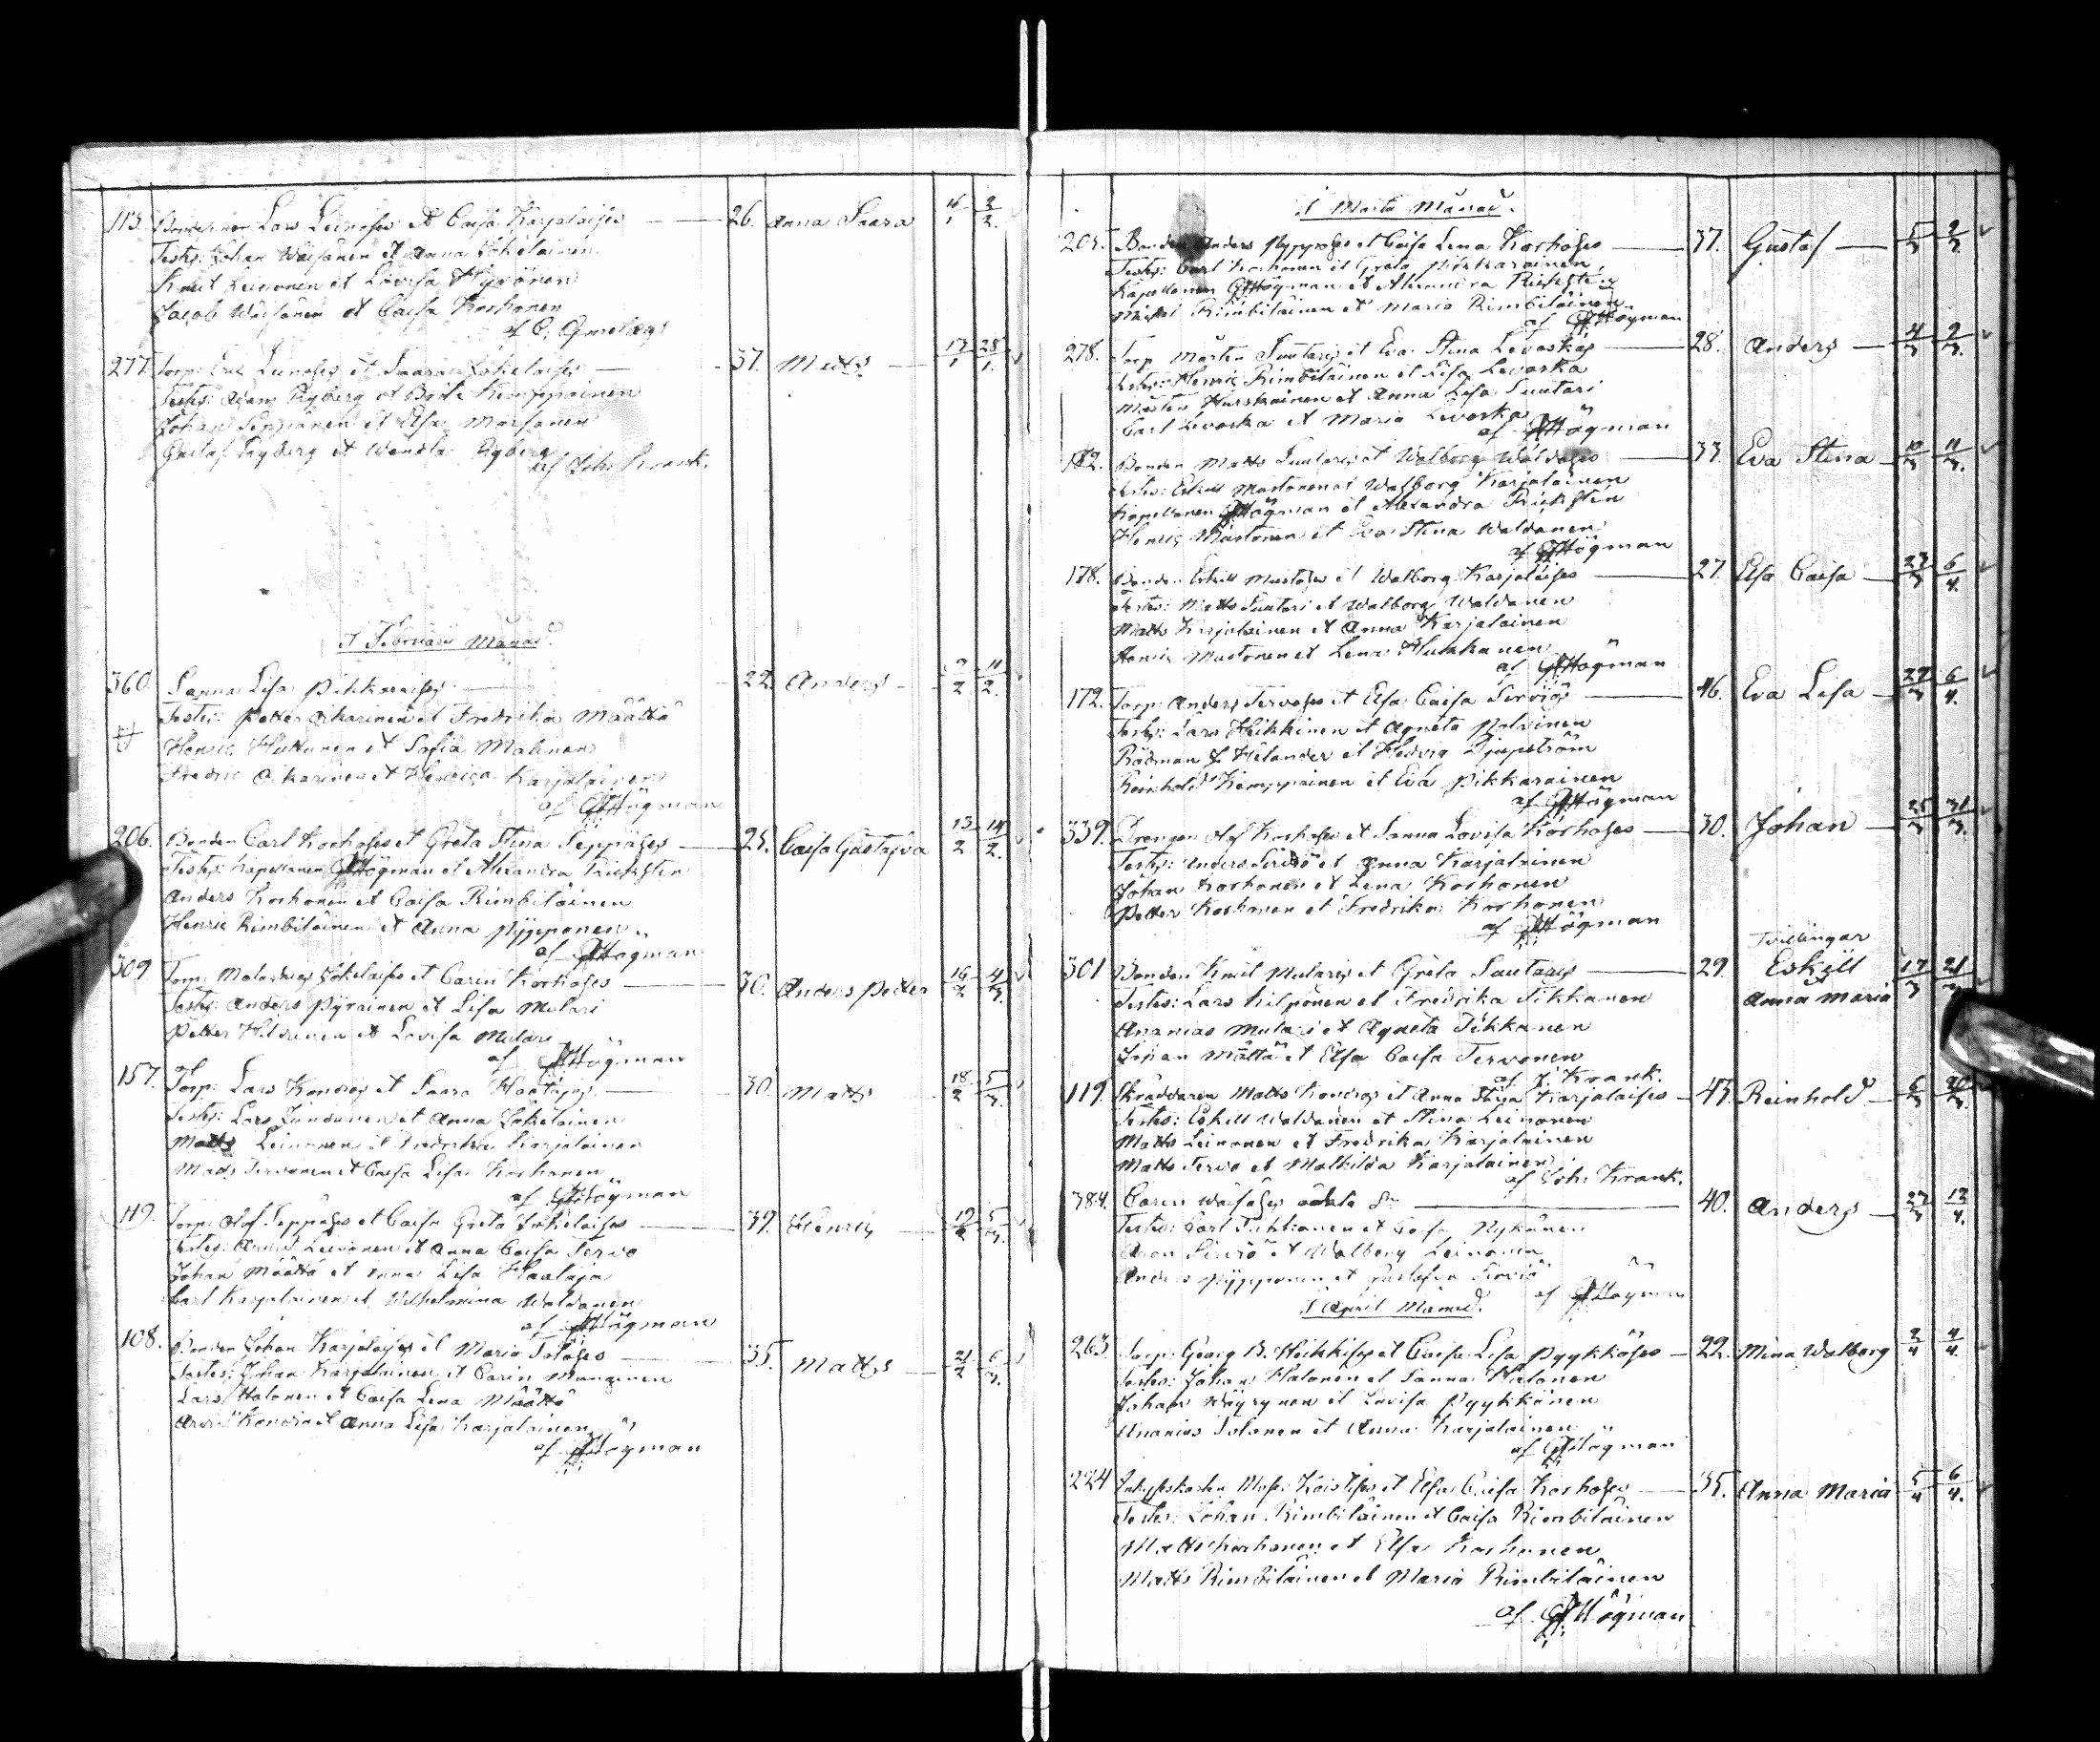 113. Bondesonen Lars Leinoses et Caisa Karjalaises 26. Anna Saara 16/1 2/2.
Testes: Johan Wäisänen et Anna Jokelainen
Knut Leinonen et Lovisa Hyrönen
Jacob Wäisänen et Caisa Korhonen
af C.
277. Torp: Eric Leinoses et Saara Jokelaises 37. Matts 13/1 28/1.
Testes: Adam Ryberg et Brita Kemppainen
Johan Seppänen et Elsa
Gustaf Ryberg et Wendla Ryberg
af Joh. Krank.
I Februarii Månad.
360. Sanna Lisa Pikkaraises 22. Anders 9/2 11/2.
Testes: Petter Åikarinen et Fredrika Määttä
Henric Huttunen et Sofia Malinen
Fredric Åikarinen et Henrica Karjalainen
af Högman
206. Bonden Carl Korhoses et Greta Stina Seppäses 25. Caisa Gustafva 13/2 14/2.
Testes: Kapellanen Högman et Alexandra Frickstén
Anders Korhonen et Caisa Rimbiläinen
Henric Rimbiläinen et Anna Pyypponen
af Högman
309. Torp: Jokelaises et Carin Korhoses 30. Anders Petter 16/2 4/3.
Testes: Anders Pyrainen et Lisa Mulari
Petter et Lovisa Mulari
af Högman
157. Torp: Lars Kondres et Saara Haatajas 30. Matts 18/2 5/3.
Testes: Lars Jundunen et Anna Jokelainen
Matts Leinonen et Fredrika Karjalainen
Matts Tervonen et Caisa Lisa Korhonen
af Högman
119. Torp: Olof Seppäses et Caisa Greta Jokelaises 39. Henric 19/2 5/3.
Testes: Arvid Leinonen et Anna Caisa Tervo
Johan Määttä et Anna Lisa Haataja
Carl Karjalainen et Wilhelmina Waldanen
af Högman
108. Bonden Johan Karjalaises et Maria Toloses 35. Matts 21/2 6/3.
Testes: Johan Karjalainen et Carin Manninen
Lars Halonen et Caisa Lena Määttä
Arvid Kondre et Anna Lisa Karjalainen
af Högman
I Martii Månad.
205. Bonden Anders Pyyppöses et Caisa Lena Korhoses 37. Gustaf 5/3 2/3
Testes: Carl Korhonen et Greta Pikkarainen
Kapellanen Högman et Alexandra Frickstén
Michel Rimbiläinen et Maria Rimbiläinen
af Högman
278. Torp Mårten Suutaris et Eva Stina Levoskas 28. Anders 4/3 2/3.
Testes: Henric Rimbiläinen et Lisa Levoska
Mårten Hurskainen et Anna Lisa Suutari
Carl Levoska et Maria Levoska
af Högman
182. Bonden Matts Suutaris et Walborg Waldases 33. Eva Stina 10/3 11/3.
Testes: Eskill Mustonen et Walborg Karjalainen
Kapellanen Högman et Alexandra Frickstén
Henric Mustonen et Eva Stina Waldanen
af Högman
178. Bonden Eskill Mustoses et Walborg Karjalaises 27. Elsa Caisa 23/3 6/4.
Testes: Matts Suutari et Walborg Waldanen
Matts Karjalainen et Anna Karjalainen
Henric Mustonen et Lena Hukkanen
af Högman
172. Torp: Anders Tervoses et Elsa Caisa Serviös 46. Eva Lisa 24/3 6/4.
Testes: Lars Heikkinen et Agneta Polvinen
Rådman J. Helander et Hedvig Djupström
Reinhold Kemppainen et Eva Pikkarainen
af Högman
339. Drengen Olof Korhoses et Sanna Lovisa Korhoses 30. Johan 25/3 31/3.
Testes: Anders Serviö et Anna Karjalainen
Johan Korhonen et Lena Korhonen
Petter Korhonen et Fredrika Korhonen
af Högman
Tvillingar
301. Bonden Knut Mularis et Greta Suutaris 29. Eskill 17/3 21/3
Testes: Lars Kilpönen et Fredrika Tikkanen Anna Maria
Ananias Mulari et Agneta Tikkanen
Johan Määttä et Elsa Caisa Tervonen
af J. Krank.
119. Skräddaren Matts Kondres et Anna Stina Karjalaises 43. Reinhold 6/3 20/3.
Testes: Eskill Waldanen et Stina Leinonen
Matts Leinonen et Fredrika Karjalainen
Matts Tervo et Mathilda Karjalainen
af Joh. Krank.
384. Carin Wäisäses oäkta Sn 40. Anders 23/3 12/4.
Testes: Carl Tuhkanen et Caisa Nykänen
Aron Serviö et Walborg Leinonen
Anders Pyypponen et Gustafva Serviö
af Högman
I April Månad.
263. Torp: Georg B. Heikkises et Caisa Lisa Pyykköses 22. Mina Walborg 2/4 4/4.
Testes: Johan Halonen et Sanna Halonen
Johan Wäyrynen et Lovisa Pyykkönen
Ananias Tolonen et Anna Karjalainen
af Högman
224. et Elsa Caisa Korhoses 35. Anna Maria 5/4 6/4.
Testes: Johan Rimbiläinen et Caisa Rimbiläinen
Matts Korhonen et Elsa Korhonen
Matts Rimbiläinen et Maria Rimbiläinen
af Högman